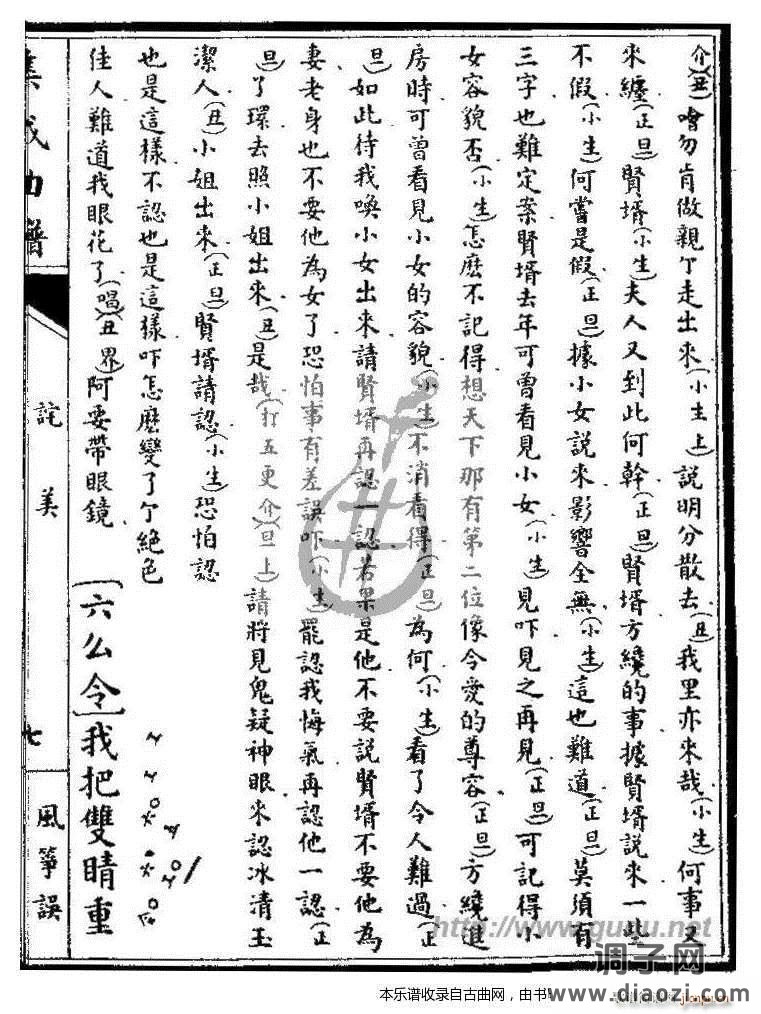 介)(丑)噲勿肯做親亇走出來(小生上)說明分散去(丑)我里亦來哉(小生)何事又
來纏(正旦)賢壻(小生)夫人又到此何幹(正旦)賢壻方纔的事據賢壻說來一些
不假(小生)何嘗是假(正旦)據小女說來影響全無(小生)這也難道(正旦)莫須有
三字也難定案賢壻去年可曾看見小女(小生)見吓見之再見(正旦)可記得小
女容貌否(小生)怎麽不記得想天下那有第二位像令愛的尊容(正旦)方纔進
房時可曾看見小女的容貌(小生)不消看得(正旦)為何(小生)看了令人難過(正
旦)如此待我喚小女出來請賢壻再認一認若果是他不要說賢壻不要他為
妻老身也不要他為女了恐怕事有差誤吓(小生)罷認我悔氣再認他一認(正
旦)了環去照小姐出來(丑)是哉(打五更介)(旦上)請將見鬼疑神眼來認冰清玉
潔人(丑)小姐出來(正旦)賢壻請認(小生)恐怕認
也是這樣不認也是這樣吓怎麽變了亇絕色
佳人難道我眼花了(唱)(丑界)阿要帶眼鏡
[六么令]我把雙睛重
集成曲譜
詫美
七
風箏誤
http://www.guqu.net
调子网
www.diaozi.com
本乐谱收录自古曲网，由书